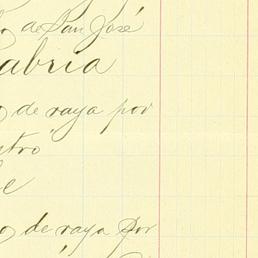 de San José
abria
de raya por
stro
e
de raya por